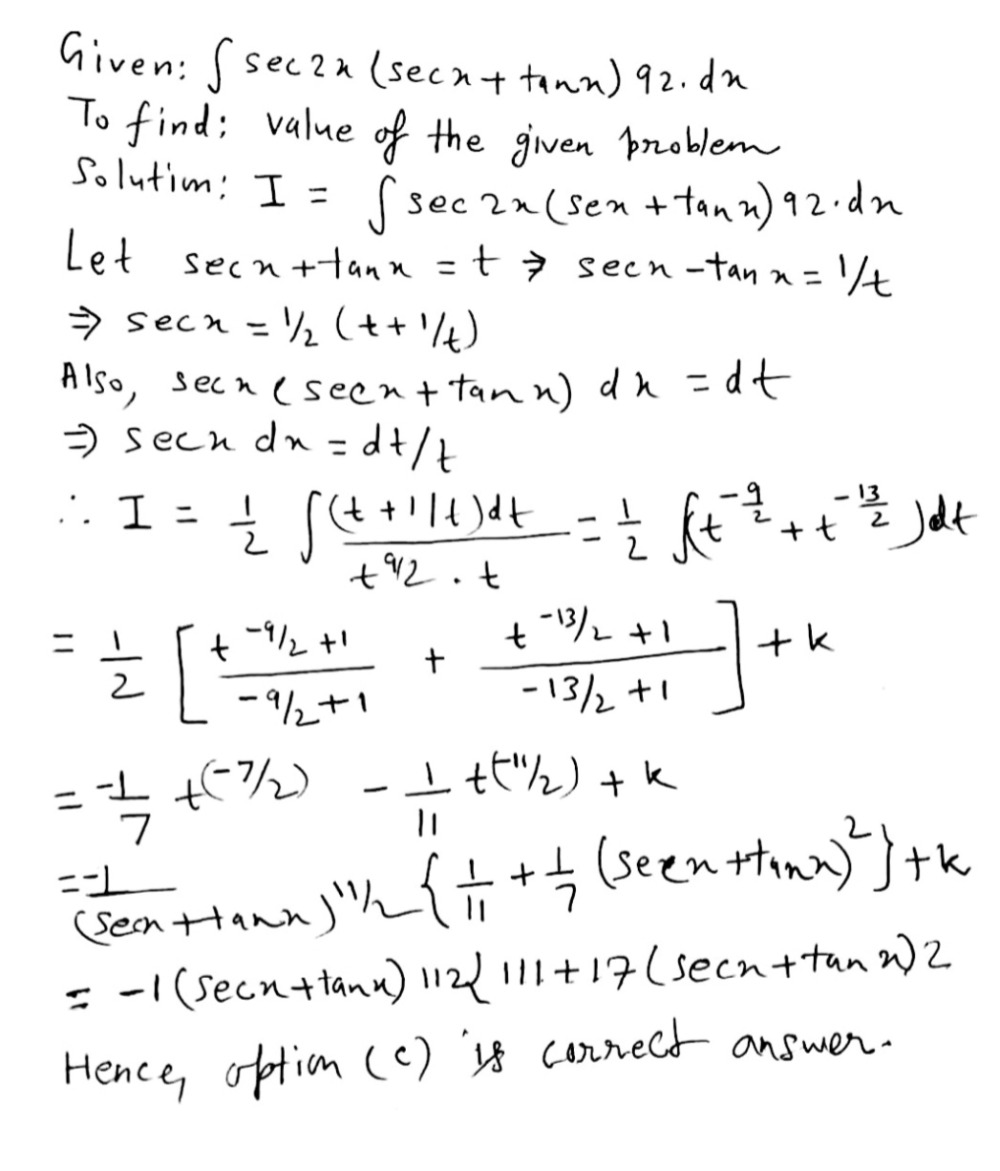 Given: ∫ sec2x (secx + tanx) 92. dx
To find: value of the given problem
Solution: I = ∫ sec 2x (sex + tan x) 92·dx
Let secx + tanx = t ⇒ secx - tan x = 1/t
⇒ secx = 1/2 (t + 1/t)
Also, secx (secx + tan x) dx = dt
⇒ secx dx = dt/t
∴ I = 1/2 ∫ (t + 1/t)dt / (t^9/2 . t) = 1/2 ∫(t^-9/2 + t^-13/2)dt
= 1/2 [ (t^-9/2 +1)/(-9/2+1) + (t^-13/2 +1)/(-13/2 +1) ] + k
= -1/7 t^(-7/2) - 1/11 t^(-11/2) + k
= -1/(secx+tanx)^11/2 { 1/11 + 1/7 (secx+tanx)^2 } + k
= -1 (secx+tanx) 112{ 111 + 17 (secx+tan x) 2
Hence, option (c) is correct answer.